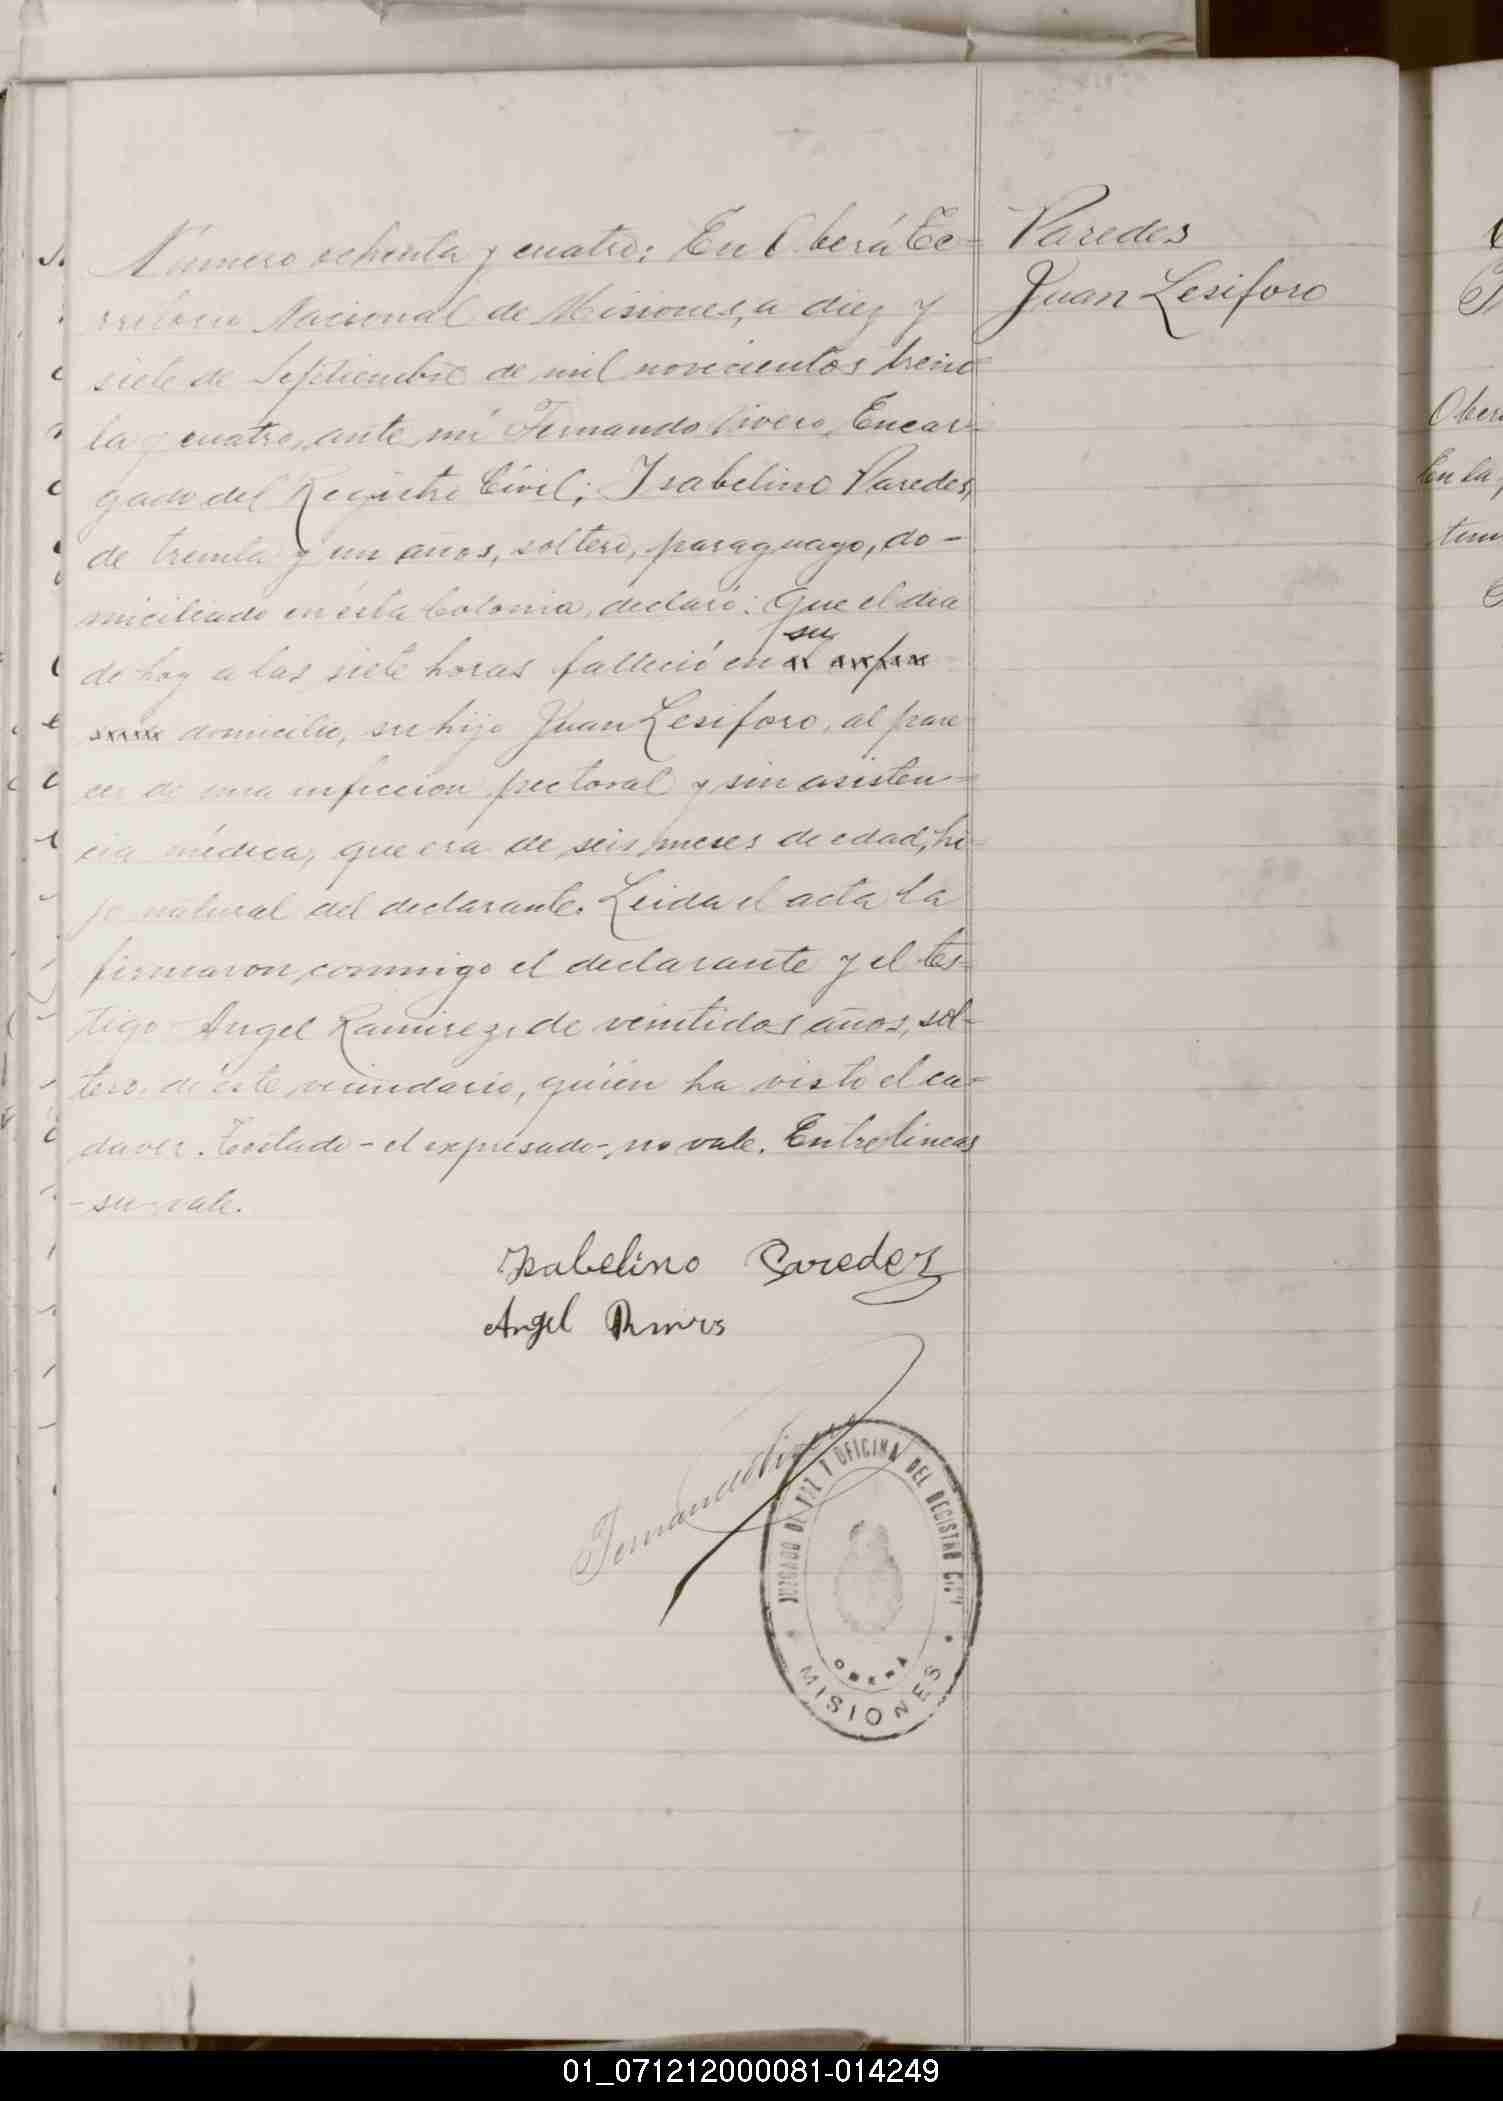 Paredes
Juan Lesiforo
Número ochenta y cuatro: En Oberá Te=
rritorio Nacional de Misiones, a diez y
siete de Septiembre de mil novecientos trein=
ta y cuatro, ante mí Fernando Vivero, Encar=
gado del Registro Civil; Isabelino Paredes,
de treinta y un años, soltero, paraguayo, do-
miciliado en ésta Colonia, declaró: Que el día
su
de hoy a las siete horas falleció en
domicilio, su hijo Juan Lesiforo, al pare
cer de una infeccion pectoral y sin asisten=
cia médica, que era de seis meses de edad, hi-
jo natural del declarante. Leida el acta la
firmaron conmigo el declarante y el tes=
tigo Angel Ramirez, de veintidos años, sol-
tero, de éste vecindario, quién ha visto el ca=
daver. Testado - el expresado - no vale. Entrelineas
- su - vale.
Isabelino Paredez
Angel
Fernando Vivero
JUZGADO DE PAZ Y OFICINA DEL REGISTRO CIVIL
OBERA
MISIONES
01_071212000081-014249